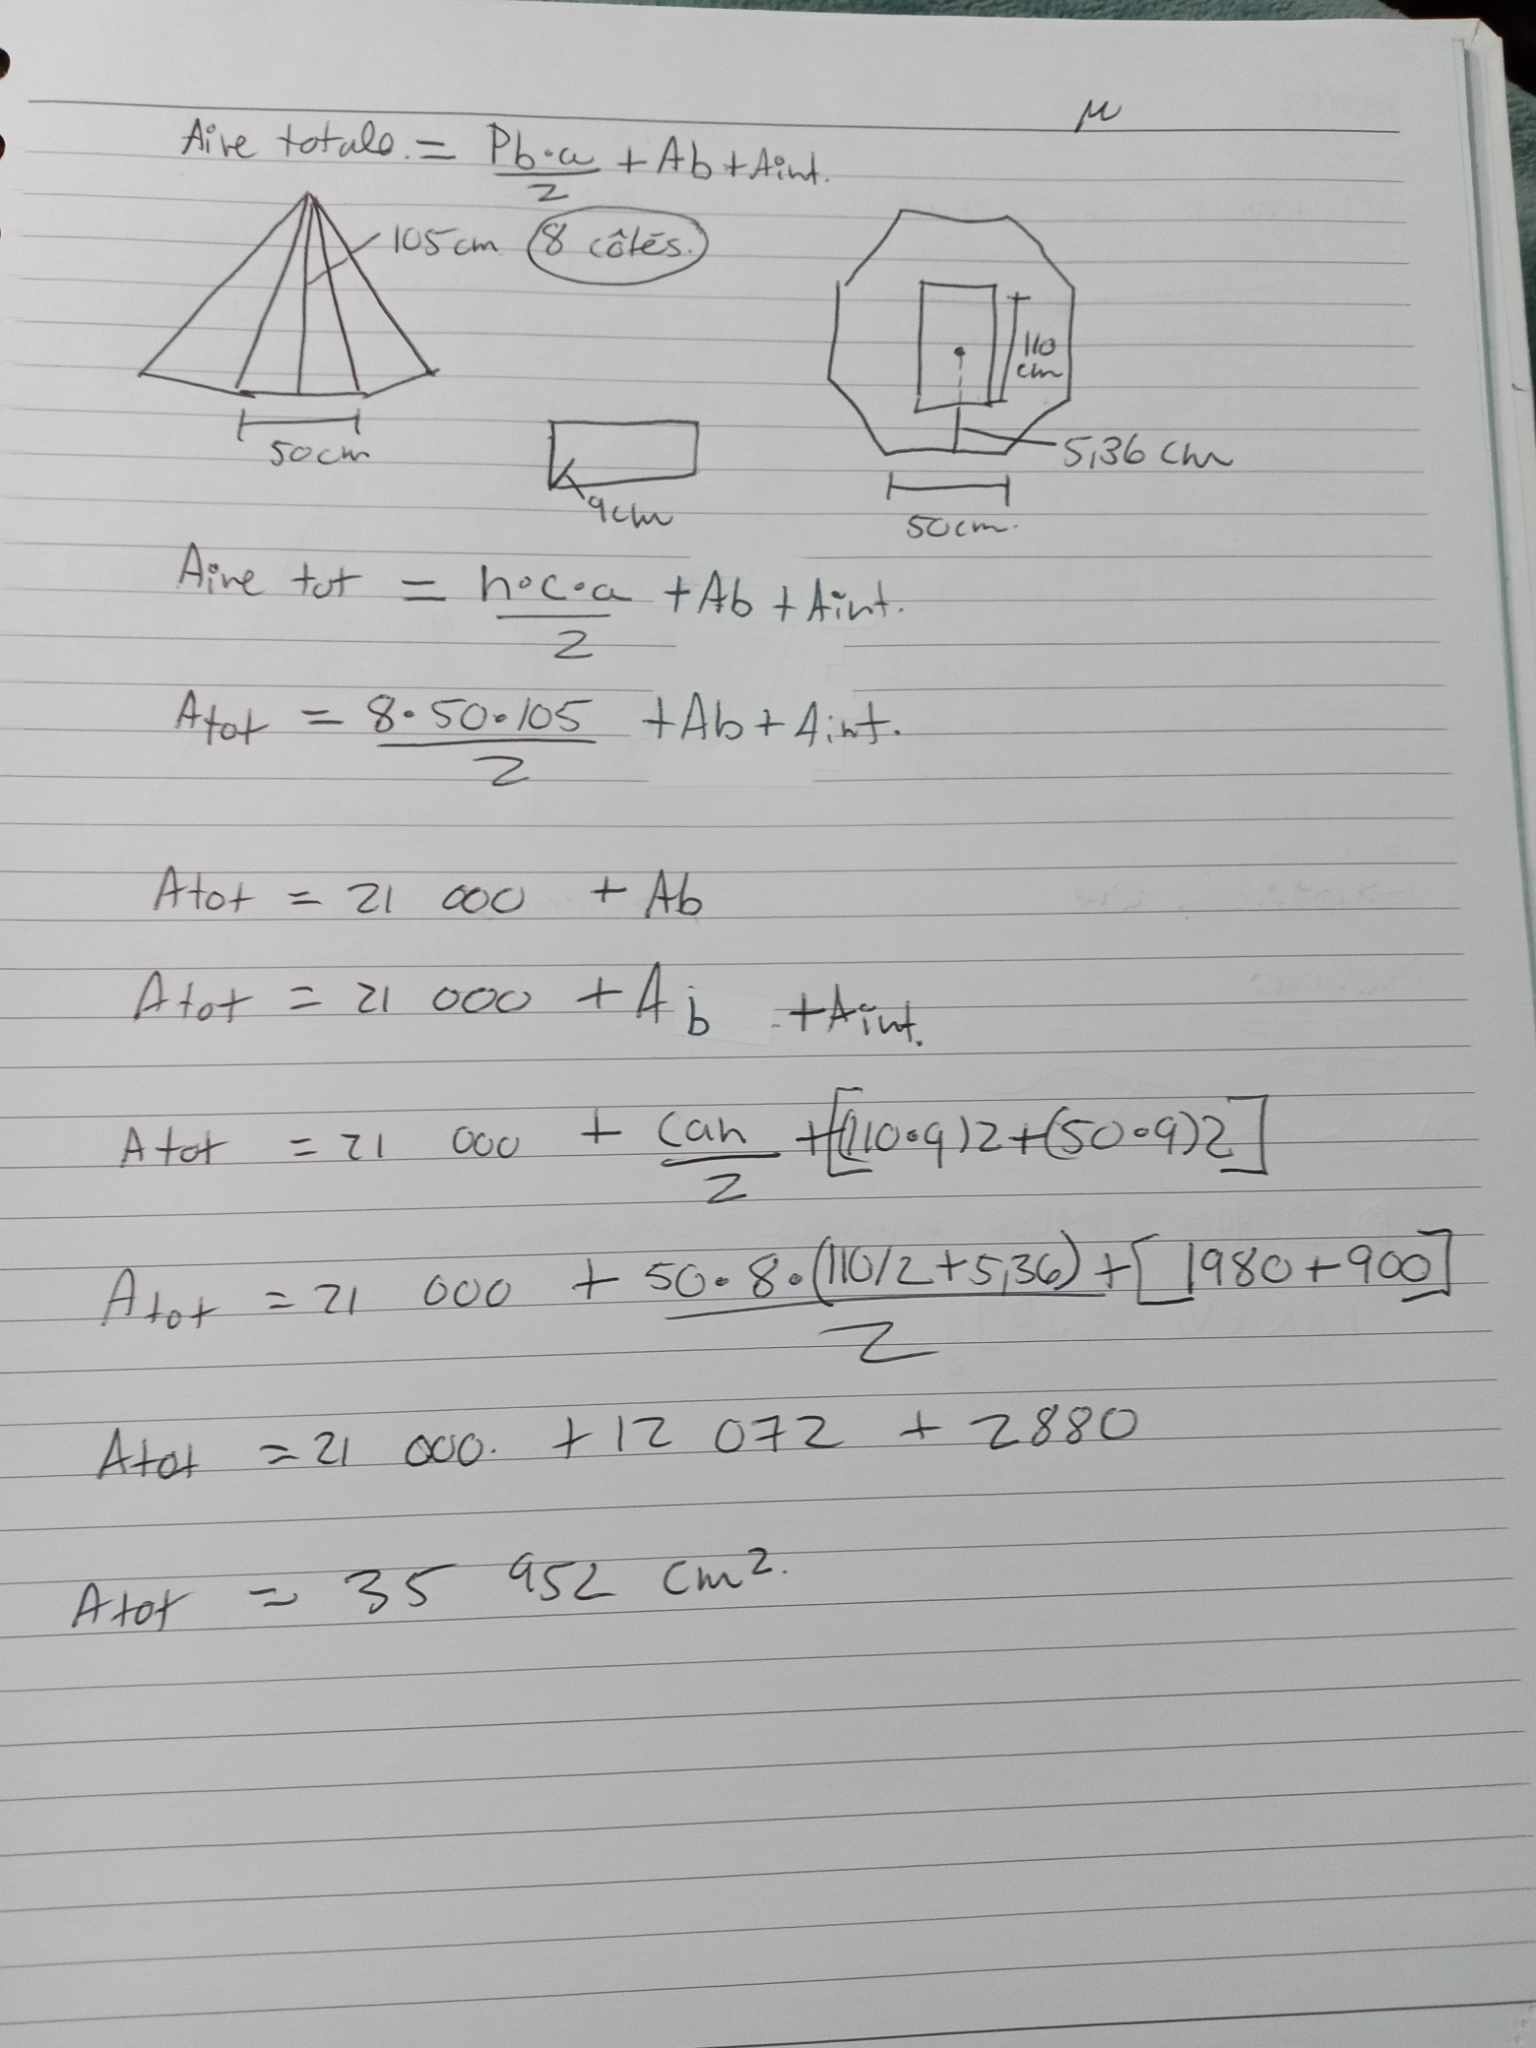 μ
Aire totale. = Pb·a/2 + Ab + Aint.
105 cm 8 côtés.
110 cm
50 cm
9cm
5,36 cm
50 cm.
Aire tot = n·c·a/2 + Ab + Aint.
Atot = 8·50·105/2 + Ab + Aint.
Atot = 21 000 + Ab
Atot = 21 000 + Ab + Aint.
Atot = 21 000 + can/2 + [(110·9)2+(50·9)2]
Atot = 21 000 + 50·8·(110/2+5,36)/2 + [1980+900]
Atot = 21 000. + 12 072 + 2880
Atot = 35 952 cm².